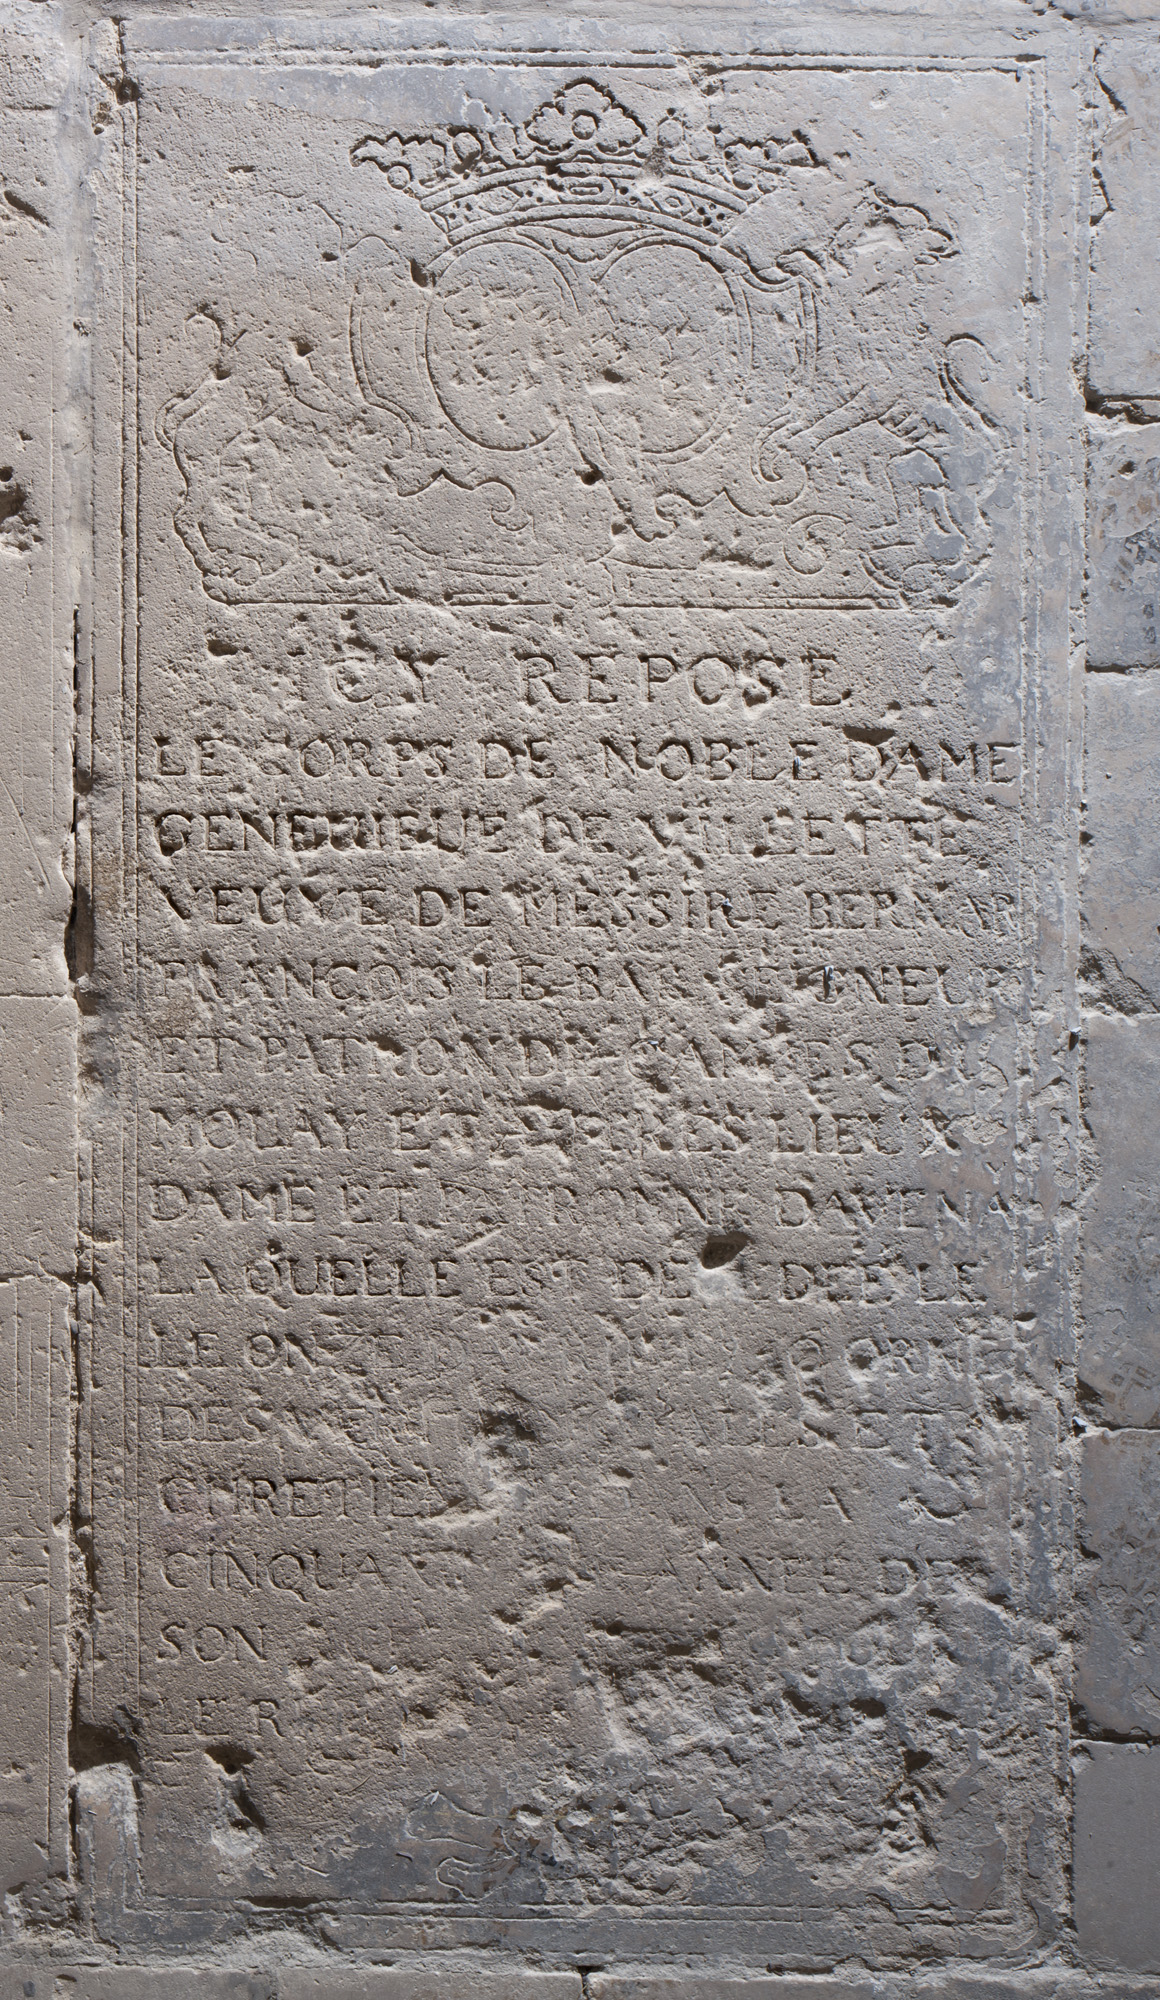 ICY REPOSE
LE CORPS DE NOBLE DAME
GENEUIEUE DE VILLETTE
VEUVE DE MESSIRE BERNAR
FRANCOIS LE BAS SEIGNEUR
ET PATRON DE CAMBES DU
MOLAY ET AUTRES LIEUX
DAME ET PATRONNE DAVENAY
LAQUELLE EST DECEDEE LE
LE ONZE DAVRIL ORNE
DES VERTUS MORALES ET
CHRETIENNES DANS LA
CINQUAN ANNEE DE
SON
LE R